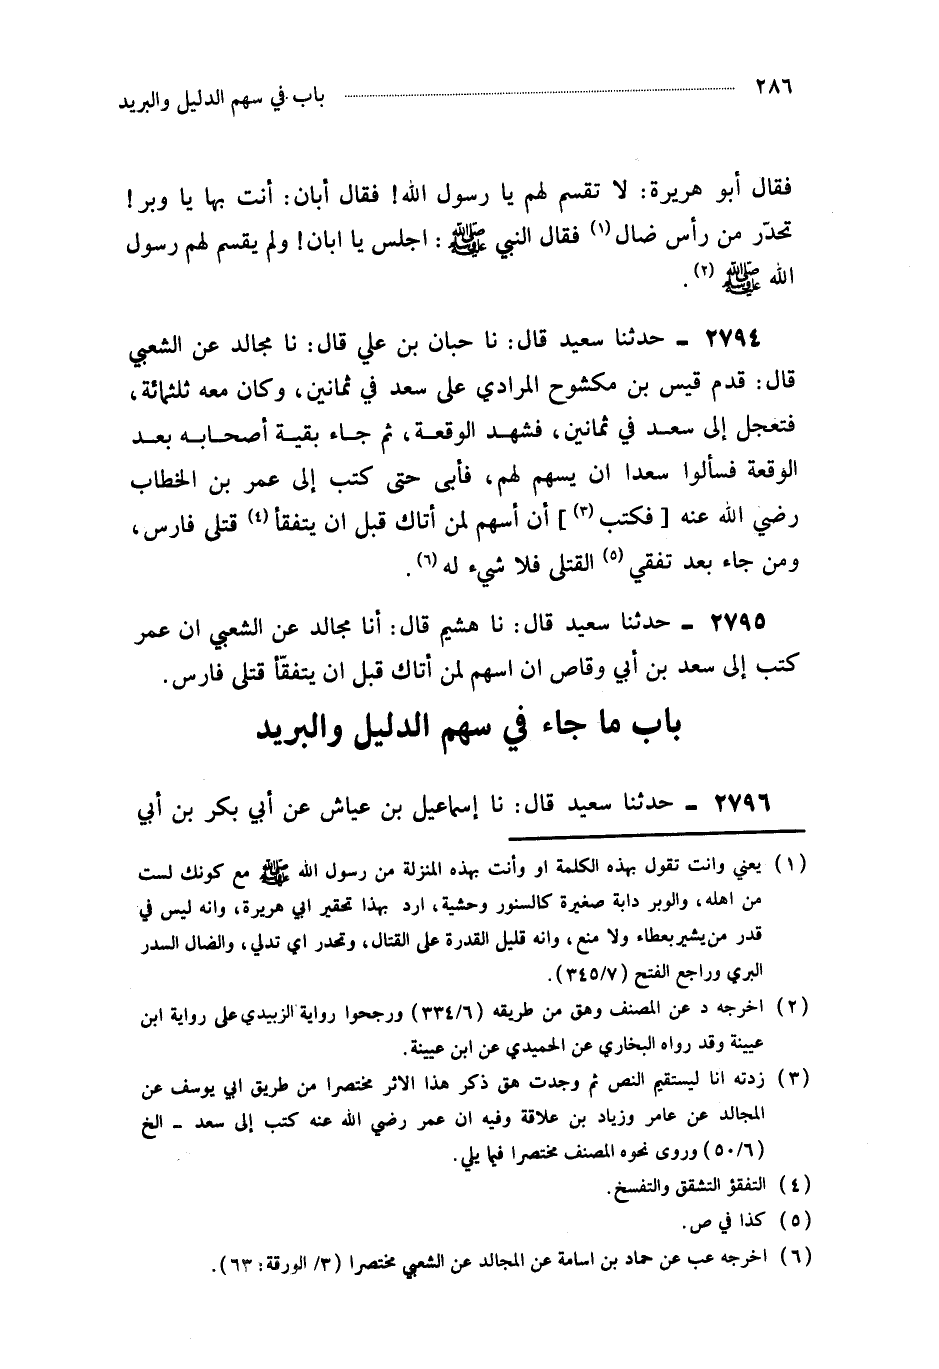 ٢٨٦ باب في سهم الدليل والبريد
فقال أبو هريرة: لا تقسم لهم يا رسول الله! فقال أبان: أنت بها يا وبر!
تحدّر من رأس ضال (١) فقال النبي ﷺ : اجلس يا ابان! ولم يقسم لهم رسول
الله ﷺ (٢) .
٢٧٩٤ ـ حدثنا سعيد قال: نا حبان بن علي قال: نا مجالد عن الشعبي
قال: قدم قيس بن مكشوح المرادي على سعد في ثمانين، وكان معه ثلثمائة،
فتعجل إلى سعد في ثمانين، فشهد الوقعة، ثم جاء بقية أصحابه بعد
الوقعة فسألوا سعدا ان يسهم لهم، فأبى حتى كتب إلى عمر بن الخطاب
رضي الله عنه [ فكتب (٣) ] أن أسهم لمن أتاك قبل ان يتفقأ (٤) قتلى فارس،
ومن جاء بعد تفقي (٥) القتلى فلا شيء له (٦) .
٢٧٩٥ ـ حدثنا سعيد قال: نا هشيم قال: أنا مجالد عن الشعبي ان عمر
كتب إلى سعد بن أبي وقاص ان اسهم لمن أتاك قبل ان يتفقّأ قتلى فارس.
باب ما جاء في سهم الدليل والبريد
٢٧٩٦ ـ حدثنا سعيد قال: نا إسماعيل بن عياش عن أبي بكر بن أبي
(١) يعني وانت تقول بهذه الكلمة او وأنت بهذه المنزلة من رسول الله ﷺ مع كونك لست
من اهله، والوبر دابة صغيرة كالسنور وحشية، ارد بهذا تحقير ابي هريرة، وانه ليس في
قدر من يشير بعطاء ولا منع، وانه قليل القدرة على القتال، وتحدر اي تدلي، والضال السدر
البري وراجع الفتح (٣٤٥/٧).
(٢) اخرجه د عن المصنف وهق من طريقه (٣٣٤/٦) ورجحوا رواية الزبيدي على رواية ابن
عيينة وقد رواه البخاري عن الحميدي عن ابن عيينة.
(٣) زدته انا ليستقيم النص ثم وجدت هق ذكر هذا الاثر مختصرا من طريق ابي يوسف عن
المجالد عن عامر وزياد بن علاقة وفيه ان عمر رضي الله عنه كتب إلى سعد ـ الخ
(٥٠/٦) وروى نحوه المصنف مختصرا فيما يلي.
(٤) التفقؤ التشقق والتفسخ.
(٥) كذا في ص.
(٦) اخرجه عب عن حماد بن اسامة عن المجالد عن الشعبي مختصرا (٣/ الورقة: ٦٣).